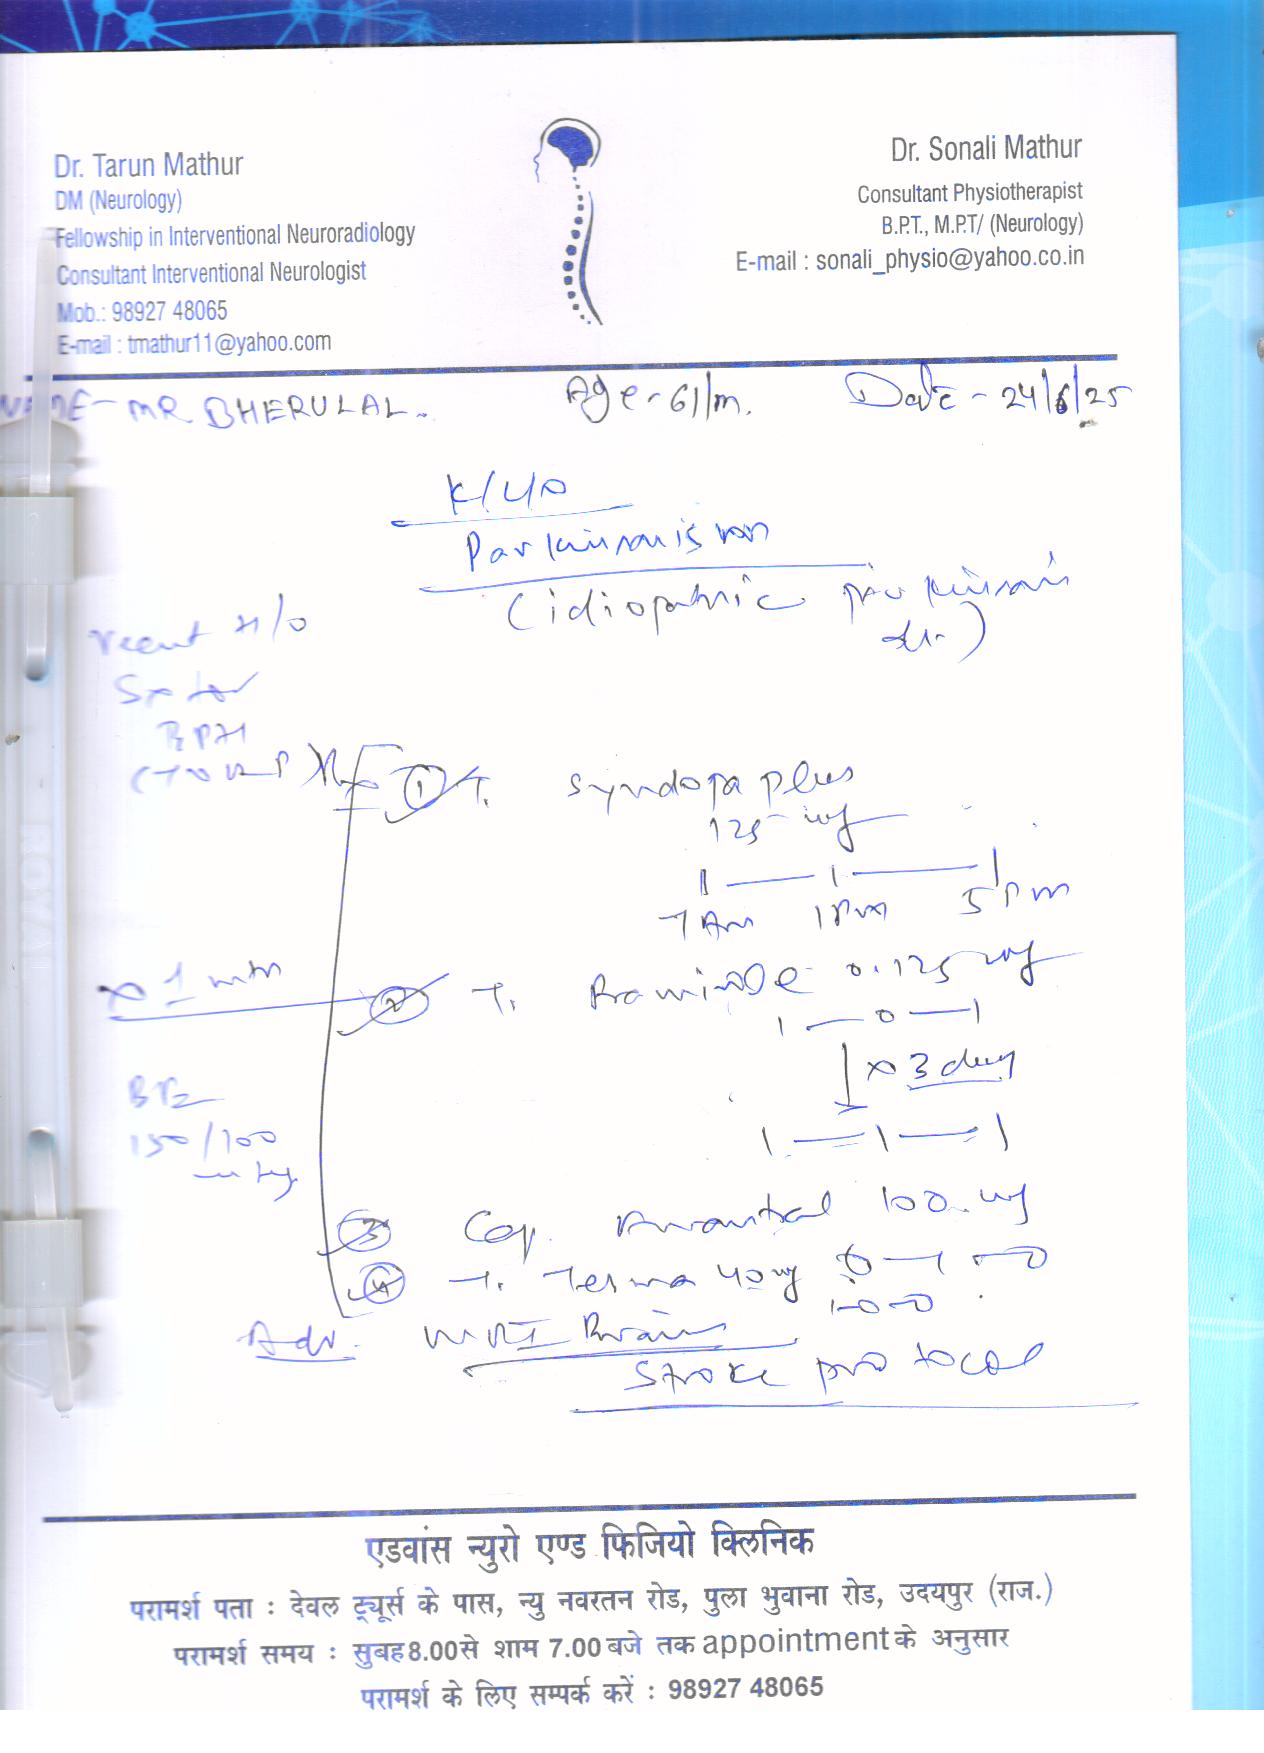 Dr. Tarun Mathur
DM (Neurology)
Fellowship in Interventional Neuroradiology
Consultant Interventional Neurologist
Mob.: 98927 48065
E-mail : tmathur11@yahoo.com
Dr. Sonali Mathur
Consultant Physiotherapist
B.P.T., M.P.T/ (Neurology)
E-mail : sonali_physio@yahoo.co.in
NAME - MR BHERULAL. Age - 61/m. Date - 24/6/25
Parkinsonism
(idiopathic parkinson's
recent H/O
Sx for
BPH
(TURP)
① T. Syndopa plus
125 mg
1 — 1 — 1
7 AM 1 PM 5 PM
x 1 mth
② T. 0.125 mg
1 — 0 — 1
x 3 day
1 — 1 — 1
BP
150/100
mm Hg
③ Cap. 100 mg
0 — 1 — 0
④ T. 40 mg
1-0-0
Adv. MRI Brain
Stroke protocol
ROYAL
एडवांस न्युरो एण्ड फिजियो क्लिनिक
परामर्श पता : देवल ट्यूर्स के पास, न्यु नवरतन रोड, पुला भुवाना रोड, उदयपुर (राज.)
परामर्श समय : सुबह 8.00 से शाम 7.00 बजे तक appointment के अनुसार
परामर्श के लिए सम्पर्क करें : 98927 48065